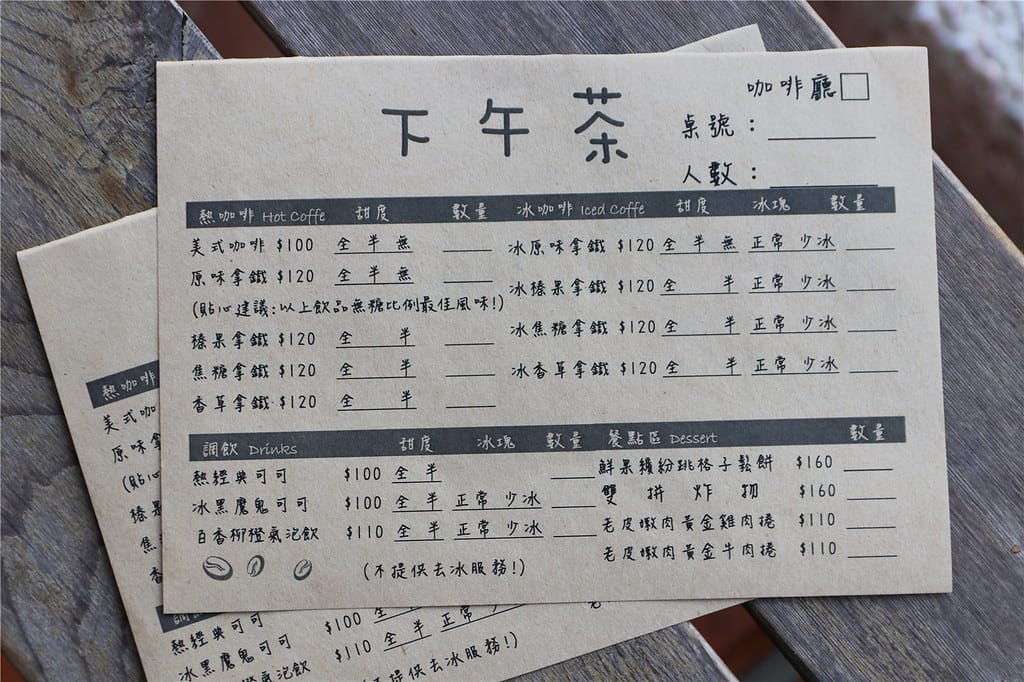 下午茶
咖啡廳
桌號：
人數：
熱咖啡 Hot Coffe 甜度 數量
美式咖啡 $100 全 半 無
原味拿鐵 $120 全 半 無
(貼心建議:以上飲品無糖比例最佳風味!)
榛果拿鐵 $120 全 半
焦糖拿鐵 $120 全 半
香草拿鐵 $120 全 半
冰咖啡 Iced Coffe 甜度 冰塊 數量
冰原味拿鐵 $120 全 半 無 正常 少冰
冰榛果拿鐵 $120 全 半 正常 少冰
冰焦糖拿鐵 $120 全 半 正常 少冰
冰香草拿鐵 $120 全 半 正常 少冰
調飲 Drinks 甜度 冰塊 數量
熱經典可可 $100 全 半
冰黑魔鬼可可 $100 全 半 正常 少冰
百香柳橙氣泡飲 $110 全 半 正常 少冰
(不提供去冰服務!)
餐點區 Dessert 數量
鮮果繽紛跳格子鬆餅 $160
雙拼炸物 $160
老皮嫩肉黃金雞肉捲 $110
老皮嫩肉黃金牛肉捲 $110
熱咖啡
美式咖
原味
(貼心
榛
焦
香
熱經典可可 $100 全 半 正常
冰黑魔鬼可可 $110 全 半
橙氣泡飲
不提供去冰服務!)